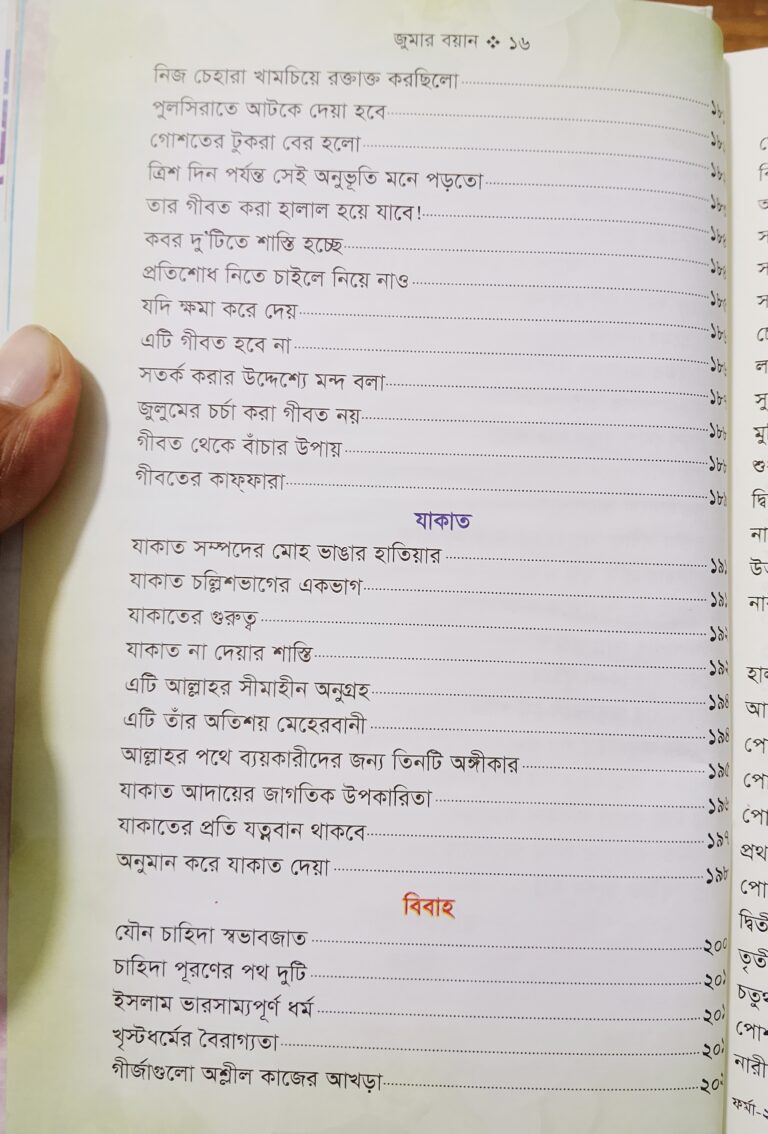 জুমার বয়ান ❖ ১৬
নিজ চেহারা খামচিয়ে রক্তাক্ত করছিলো
পুলসিরাতে আটকে দেয়া হবে
গোশতের টুকরা বের হলো
ত্রিশ দিন পর্যন্ত সেই অনুভূতি মনে পড়তো
তার গীবত করা হালাল হয়ে যাবে!
কবর দু'টিতে শাস্তি হচ্ছে
প্রতিশোধ নিতে চাইলে নিয়ে নাও
যদি ক্ষমা করে দেয়
এটি গীবত হবে না
সতর্ক করার উদ্দেশ্যে মন্দ বলা
জুলুমের চর্চা করা গীবত নয়
গীবত থেকে বাঁচার উপায়
গীবতের কাফ্ফারা
যাকাত
যাকাত সম্পদের মোহ ভাঙার হাতিয়ার
যাকাত চল্লিশভাগের একভাগ
যাকাতের গুরুত্ব
যাকাত না দেয়ার শাস্তি
এটি আল্লাহর সীমাহীন অনুগ্রহ ১৯৪
এটি তাঁর অতিশয় মেহেরবানী ১৯৪
আল্লাহর পথে ব্যয়কারীদের জন্য তিনটি অঙ্গীকার ১৯৫
যাকাত আদায়ের জাগতিক উপকারিতা ১৯৬
যাকাতের প্রতি যত্নবান থাকবে ১৯৭
অনুমান করে যাকাত দেয়া ১৯৮
বিবাহ
যৌন চাহিদা স্বভাবজাত ২০০
চাহিদা পূরণের পথ দুটি ২০১
ইসলাম ভারসাম্যপূর্ণ ধর্ম ২০১
খৃস্টধর্মের বৈরাগ্যতা ২০১
গীর্জাগুলো অশ্লীল কাজের আখড়া ২০২